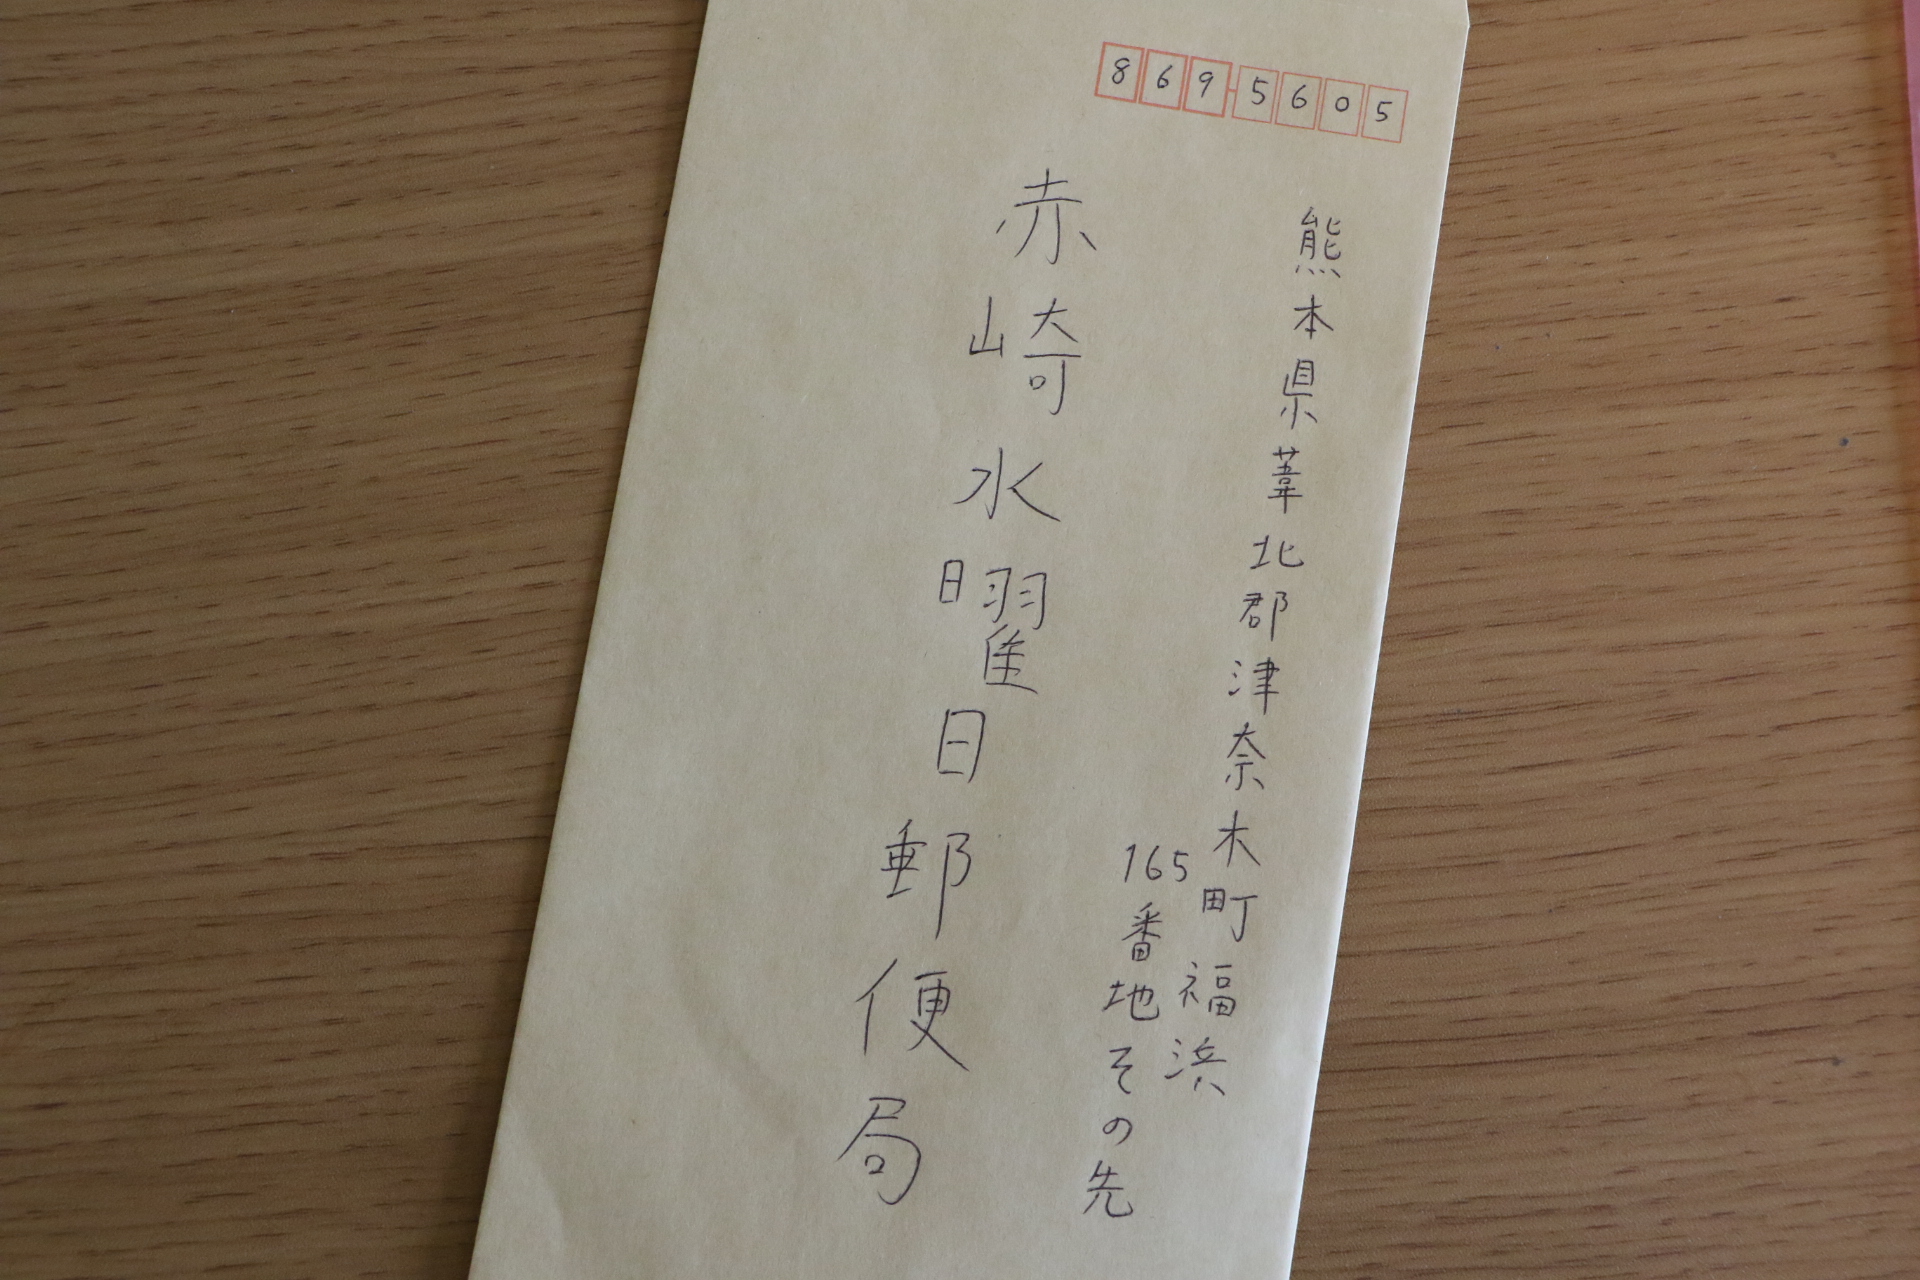 869-5605
熊本県葦北郡津奈木町福浜
165番地その先
赤崎水曜日郵便局